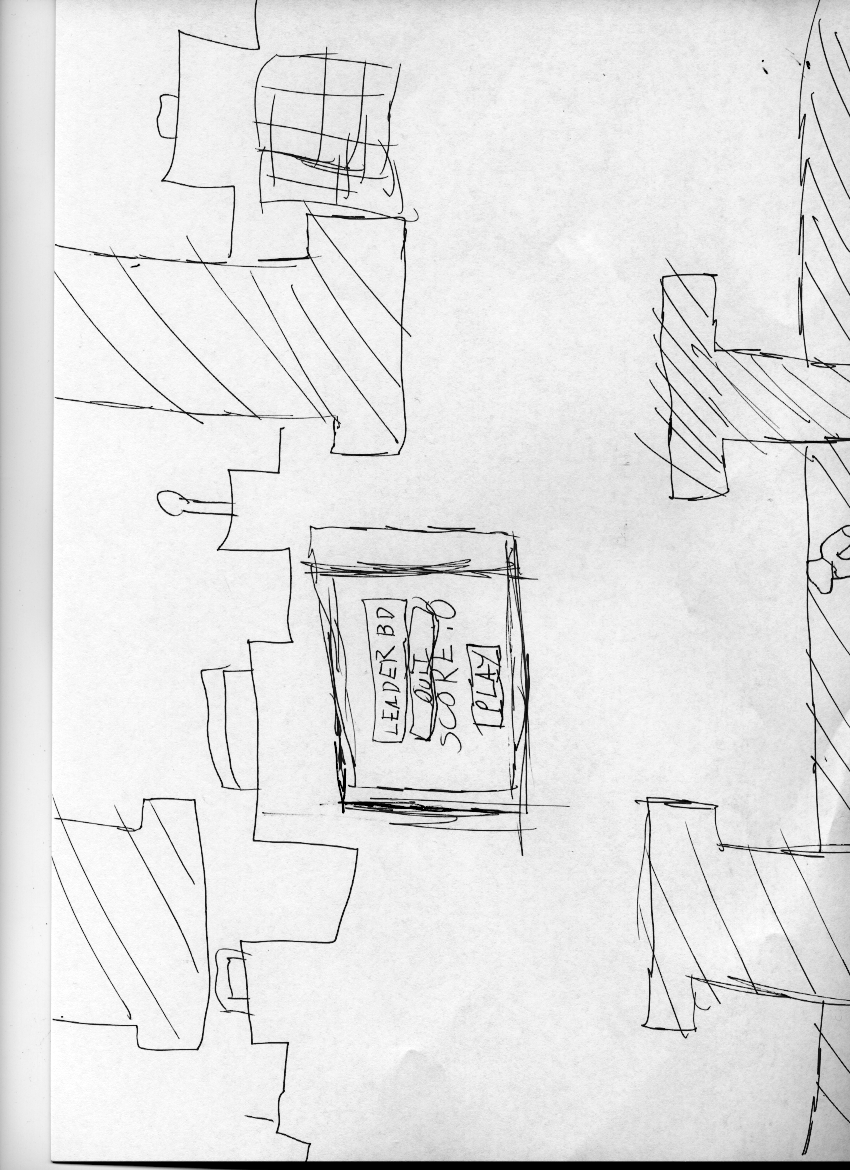 LEADER BD
QUIT
SCORE:0
PLAY